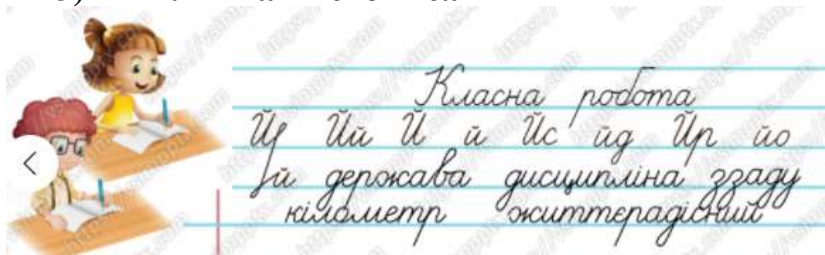 Класна робота
Йй Йй Й й Йс йд Йр йо
й держава дисципліна ззаду
кілометр життєрадісний